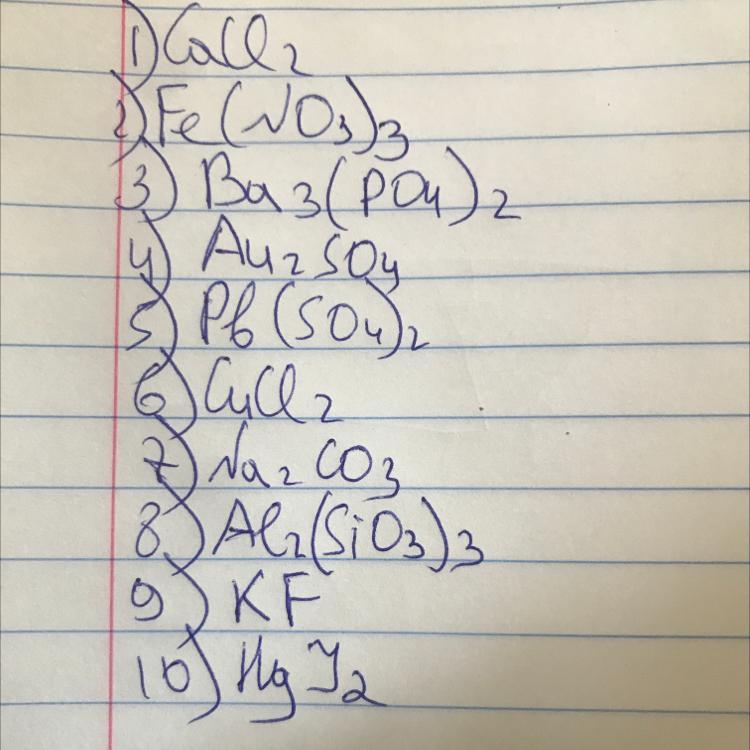 1) CaCl2
2) Fe(NO3)3
3) Ba3(PO4)2
4) Au2SO4
5) Pb(SO4)2
6) CuCl2
7) Na2CO3
8) Al2(SiO3)3
9) KF
10) HgJ2